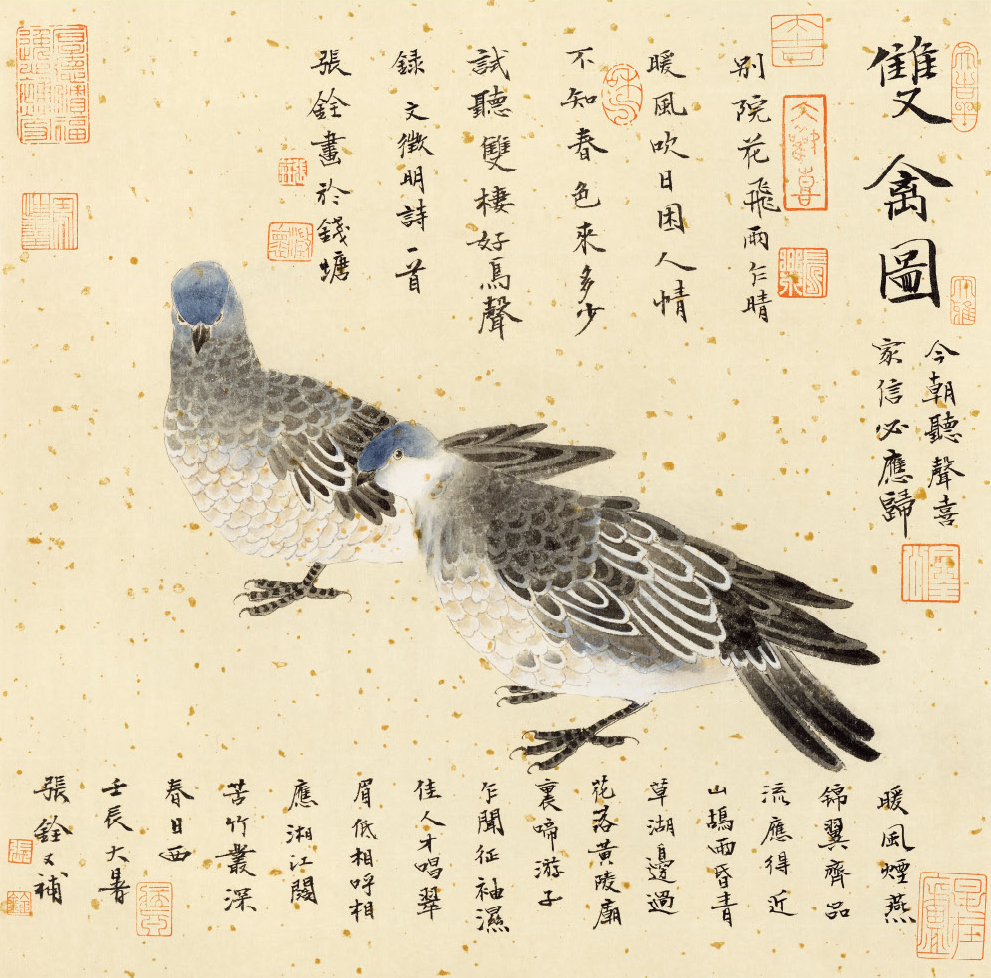 雙禽圖
今朝聽聲喜
家信必應歸
别院花飛雨乍晴
暖風吹日困人情
不知春色來多少
試聽雙棲好鳥聲
録文徵明詩一首
張銓畫於錢塘
暖風煙燕
錦翼齊品
流應得近
山鴣雨昏青
草湖邊過
花落黄陵廟
裏啼游子
乍聞征袖濕
佳人才唱翠
眉低相呼相
應湘江闊
苦竹叢深
春日西
壬辰大暑
張銓又補